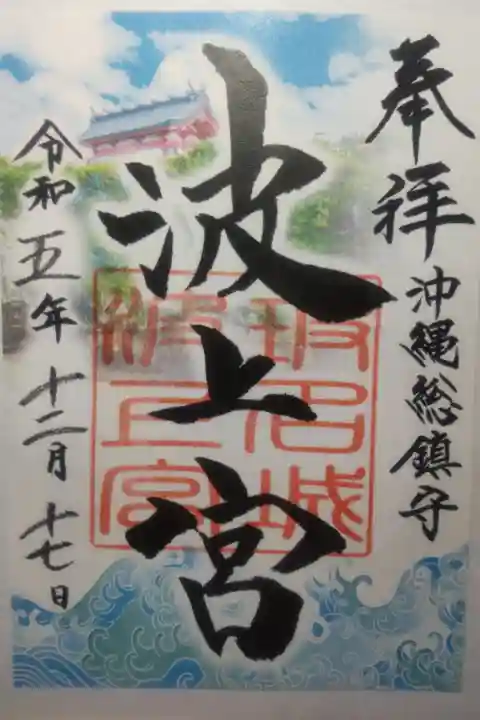 奉拝
沖縄総鎮守
波上宮
坂名城
波上宮
令和五年十二月十七日